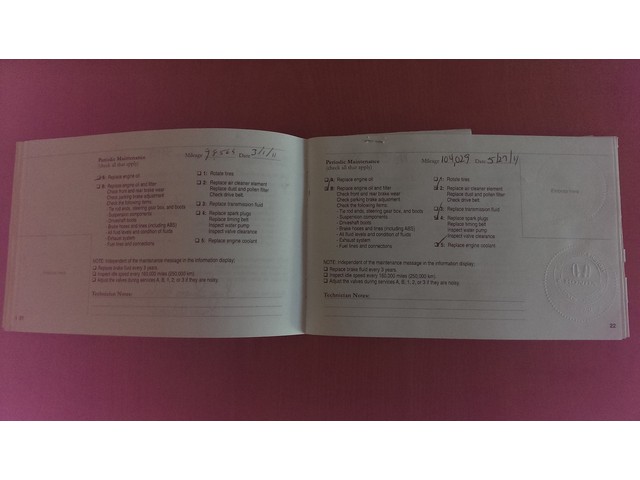 Periodic Maintenance
(check all that apply)
Mileage Date
A: Replace engine oil
B: Replace engine oil and filter
Check front and rear brake wear
Check parking brake adjustment
Check the following items:
- Tie rod ends, steering gear box, and boots
- Suspension components
- Driveshaft boots
- Brake hoses and lines (including ABS)
- All fluid levels and condition of fluids
- Exhaust system
- Fuel lines and connections
1: Rotate tires
2: Replace air cleaner element
Replace dust and pollen filter
Check drive belt
3: Replace transmission fluid
4: Replace spark plugs
Replace timing belt
Inspect water pump
Inspect valve clearance
5: Replace engine coolant
NOTE: Independent of the maintenance message in the information display:
Replace brake fluid every 3 years.
Inspect idle speed every 160,000 miles (260,000 km).
Adjust the valves during services A, B, 1, 2, or 3 if they are noisy.
Technician Notes:
Periodic Maintenance
(check all that apply)
Mileage 104,029 Date 5/27/11
A: Replace engine oil
B: Replace engine oil and filter
Check front and rear brake wear
Check parking brake adjustment
Check the following items:
- Tie rod ends, steering gear box, and boots
- Suspension components
- Driveshaft boots
- Brake hoses and lines (including ABS)
- All fluid levels and condition of fluids
- Exhaust system
- Fuel lines and connections
1: Rotate tires
2: Replace air cleaner element
Replace dust and pollen filter
Check drive belt
3: Replace transmission fluid
4: Replace spark plugs
Replace timing belt
Inspect water pump
Inspect valve clearance
5: Replace engine coolant
NOTE: Independent of the maintenance message in the information display:
Replace brake fluid every 3 years.
Inspect idle speed every 160,000 miles (260,000 km).
Adjust the valves during services A, B, 1, 2, or 3 if they are noisy.
Technician Notes:
22